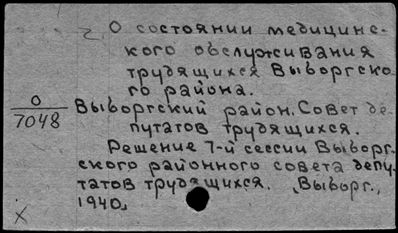 О состоянии медицинс-
кого обслуживания
трудящихся Выборгско-
го района.
О
7048
Выборгский район. Совет де-
путатов трудящихся.
Решение 7-й сессии Выборг-
ского районного совета депу-
татов трудящихся. Выборг.,
1940.
X